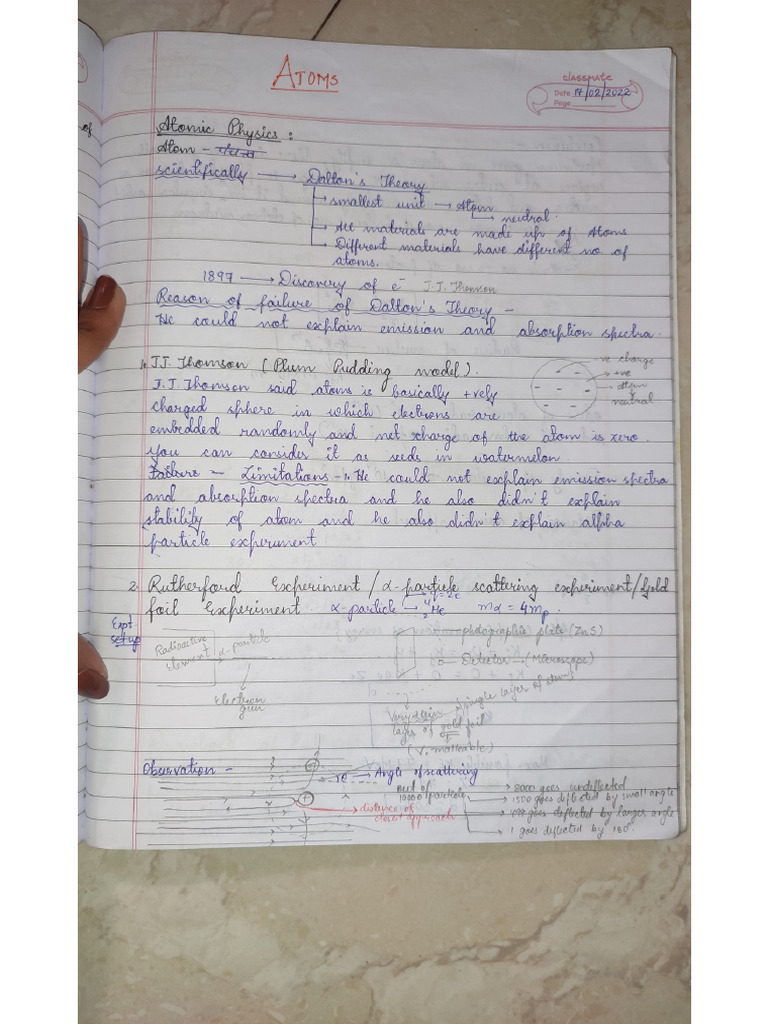 ATOMS
classmate
Date 17/02/2022
Page
Atomic Physics :
Atom -
scientifically → Dalton's Theory
→ smallest unit → Atom
→ neutral.
→ All materials are made up of Atoms
→ Different materials have different no of
atoms.
1897 → Discovery of e⁻ J.J. Thomson
Reason of failure of Dalton's Theory -
He could not explain emission and absorption spectra.
1. J.J. Thomson (Plum Pudding model).
-ve charge
+ve
atom
neutral
J.J. Thomson said atoms is basically +vely
charged sphere in which electrons are
embedded randomly and net charge of the atom is zero.
you can consider it as seeds in watermelon.
Failure - Limitations -: He could not explain emission spectra
and absorption spectra and he also didn't explain
stability of atom and he also didn't explain alpha
particle experiment.
2. Rutherford Experiment / α-particle scattering experiment/Gold
foil Experiment α-particle → ⁴₂He mα = 4mp.
q=2e
Expt
setup
Radioactive
element
α-particle
electron
gun
photographic plate (ZnS)
Detector → (Microscope)
Very thin → single layer of atoms
layer of gold foil
(V. malleable)
Observation -
Angle of scattering
distance of
closest approach
out of
10000 particle
→ 8000 goes undeflected
→ 1500 goes deflected by small angle
goes deflected by larger angle
→ 1 goes deflected by 180°.